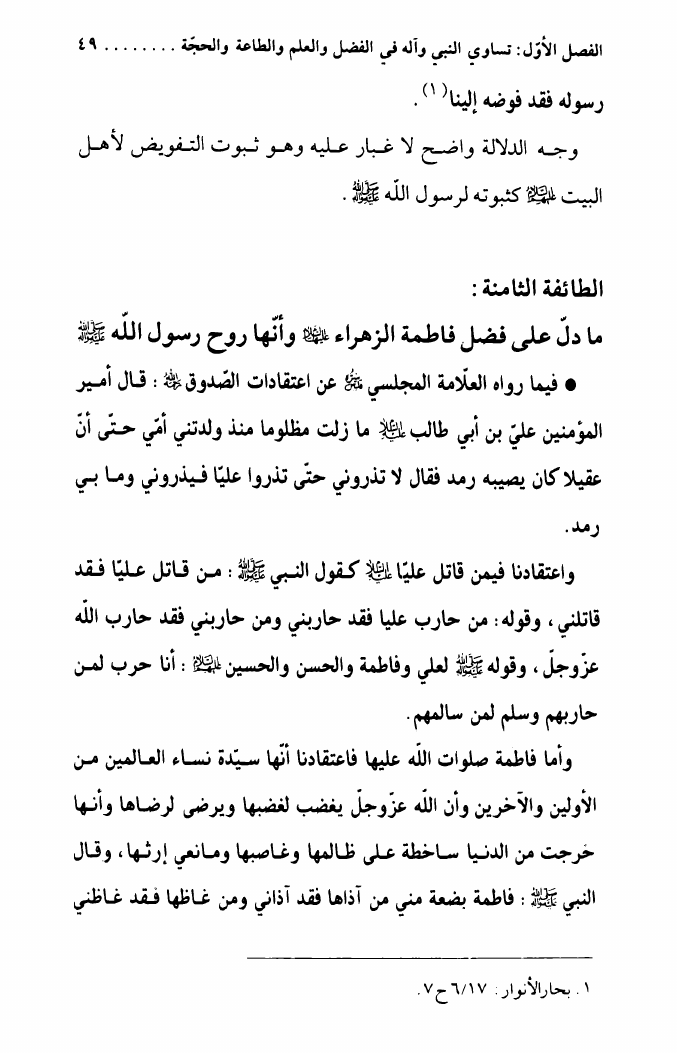 الفصل الأوّل: تساوي النبي وآله في الفضل والعلم والطاعة والحجّة ........ ٤٩
رسوله فقد فوضه إلينا(١).
وجه الدلالة واضح لا غبار عليه وهو ثبوت التفويض لأهل
البيت عليهم السلام كثبوته لرسول اللّه ﷺ.
الطائفة الثامنة:
ما دلّ على فضل فاطمة الزهراء عليها السلام وأنّها روح رسول اللّه ﷺ
• فيما رواه العلّامة المجلسي قدس سره عن اعتقادات الصّدوق رحمه الله: قال أمير
المؤمنين عليّ بن أبي طالب عليه السلام ما زلت مظلوما منذ ولدتني أمّي حتّى أنّ
عقيلا كان يصيبه رمد فقال لا تذروني حتّى تذروا عليّا فيذروني وما بي
رمد.
واعتقادنا فيمن قاتل عليّا عليه السلام كقول النبي ﷺ: من قاتل عليّا فقد
قاتلني، وقوله: من حارب عليا فقد حاربني ومن حاربني فقد حارب اللّه
عزّوجلّ، وقوله ﷺ لعلي وفاطمة والحسن والحسين عليهم السلام: أنا حرب لمن
حاربهم وسلم لمن سالمهم.
وأما فاطمة صلوات اللّه عليها فاعتقادنا أنّها سيّدة نساء العالمين من
الأولين والآخرين وأن اللّه عزّوجلّ يغضب لغضبها ويرضى لرضاها وأنها
خرجت من الدنيا ساخطة على ظالمها وغاصبها ومانعي إرثها، وقال
النبي ﷺ: فاطمة بضعة مني من آذاها فقد آذاني ومن غاظها فقد غاظني
١. بحارالأنوار: ٦/١٧ ح٧.